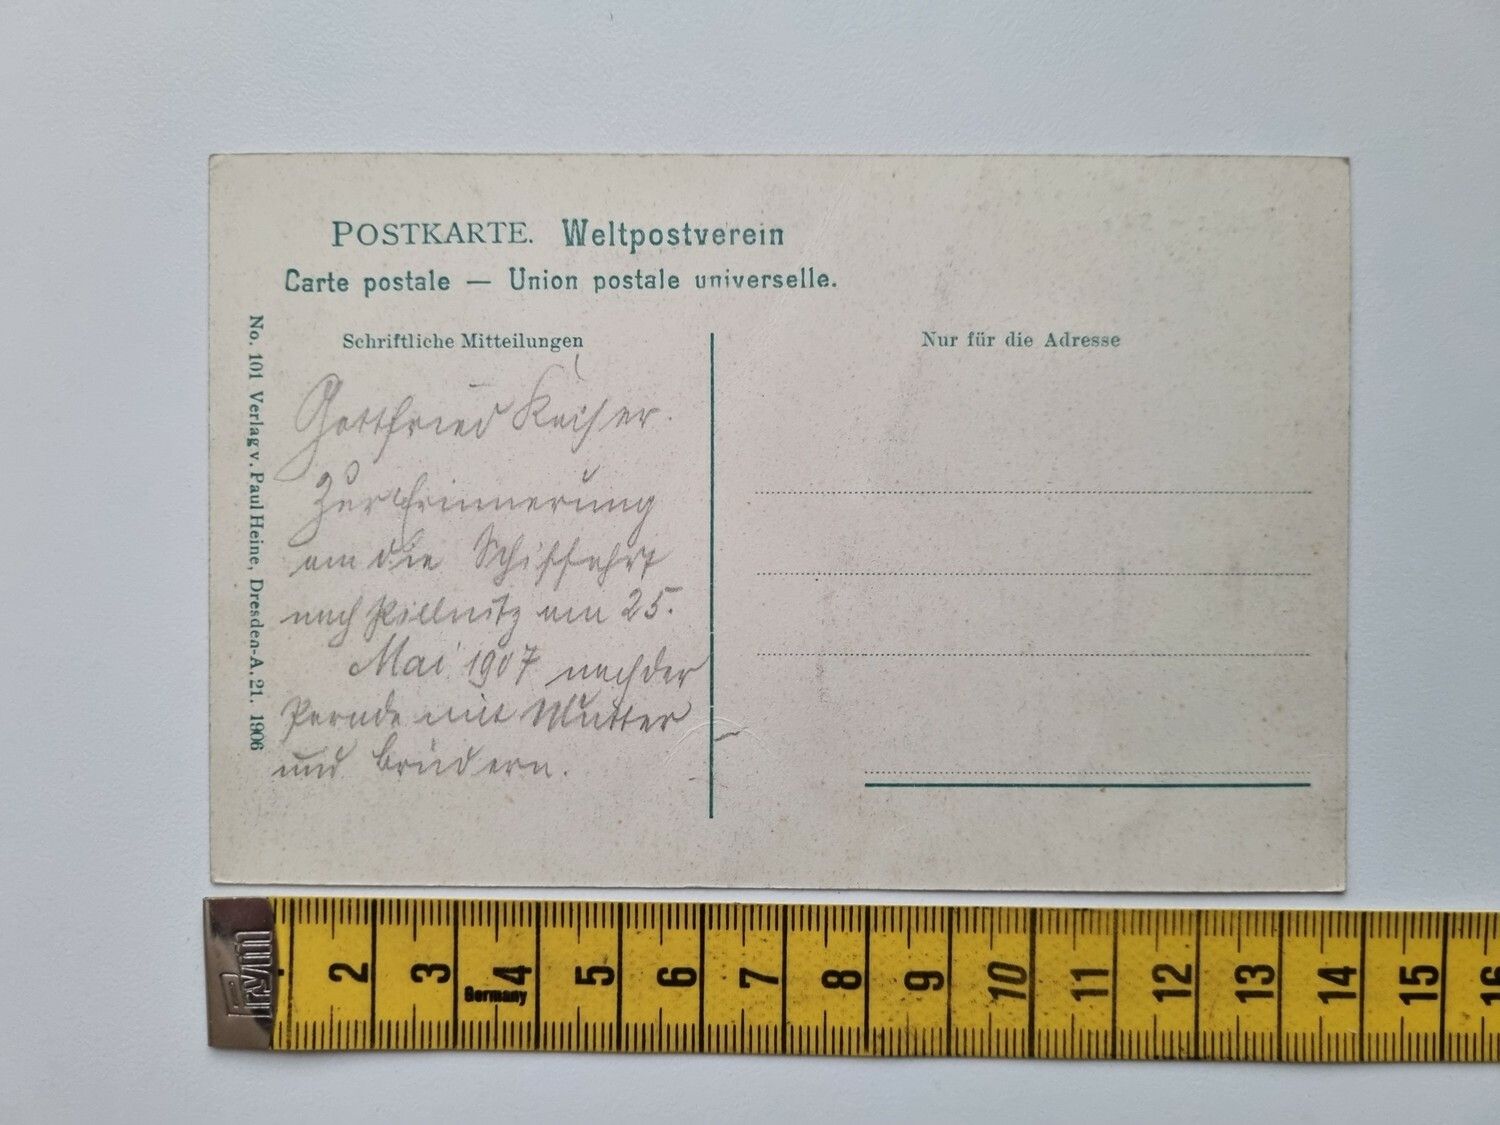 POSTKARTE. Weltpostverein
Carte postale — Union postale universelle.
Schriftliche Mitteilungen
Nur für die Adresse
No. 101 Verlag v. Paul Heine, Dresden-A. 21. 1906
Gottfried Keiser.
Zur Erinnerung
an die Schiffahrt
nach Pillnitz am 25.
Mai 1907 nach der
Parade mit Mutter
und Brüdern.
Prym
2 3 4 5 6 7 8 9 10 11 12 13 14 15 16
Germany